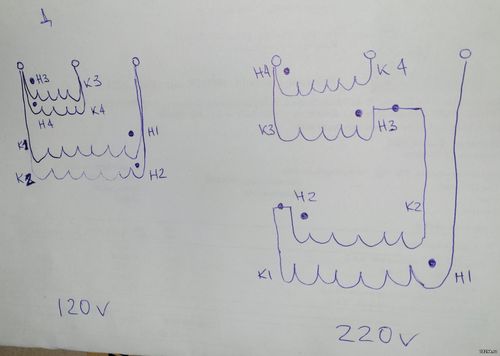 Д
H3
K3
H4
K4
K1
H1
K2
H2
120v
H4
K4
K3
H3
H2
K2
K1
H1
220v